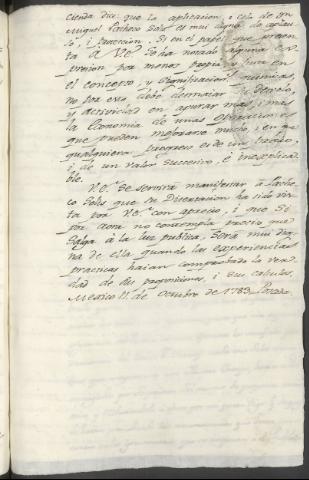 cienda dice que la aplicacion, i celo de Dn
Miguel Pacheco Solis es mui digno de aplau-
so, i proteccion. Si en el papel que presen-
ta á V.E. se ha notado alguna ex-
presion por menos propia, ú obscura en
el concepto, y significacion quimica,
no por eso debe desmaiar su desvelo,
y actividad en apurar mas, i mas
la Economia de unas operaciones
que pueden mejorarse mucho, i en que
qualquiera progreso es de un credito,
i de un valor succesivo, é inexplica-
ble.
V.E. se servirá manifestar á Pache-
co Solis que su Disertacion ha sido vis-
ta por V.E. con aprecio, i que si
por aora no contempla preciso que
salga á la luz publica, será mui dig-
na de ella quando las experiencias
practicas haian comprobado la ver-
dad de sus proposiciones, i sus calculos.
Mexico 11 de Octubre de 1783.